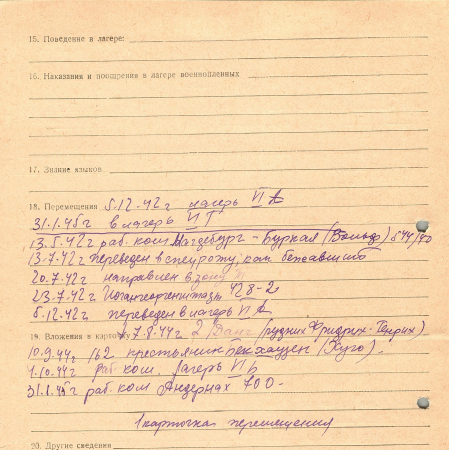 15. Поведение в лагере:
16. Наказания и поощрения в лагере военнопленных
17. Знание языков
18. Перемещения 5.12.42 г лагерь VI А
31.1.45 г в лагерь VI Г
13.5.42 г раб. ком Магдебург - Буркая (Вольф) 544/40
13.7.42 г переведен в спецроту, как бежавший
20.7.42 направлен в
23.7.42 г 428-2
5.12.42 г переведен в лагерь VI А
19. Вложения в карточку 7.8.44 г 2 (рудник Фридрих-Генрих)
10.9.44 г 162 крестьянин Бекхаузен (Хуго).
1.10.44 г раб. ком. Лагерь VI Б
31.1.45 г раб. ком Андернах 700-
1 карточка перемещения
20. Другие сведения